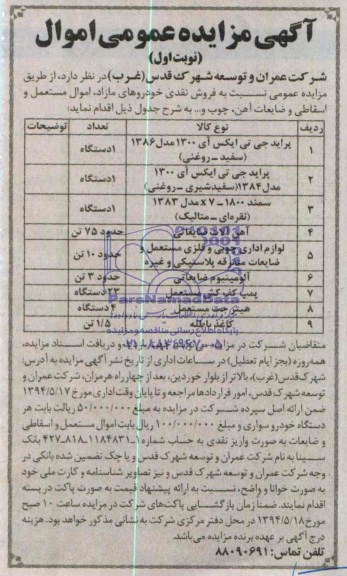 آگهی مزایده عمومی اموال
(نوبت اول)
شرکت عمران و توسعه شهرک قدس (غرب) در نظر دارد، از طریق
مزایده عمومی نسبت به فروش نقدی خودروهای مازاد، اموال مستعمل و
اسقاطی و ضایعات آهن، چوب و... به شرح جدول ذیل اقدام نماید:
ردیف نوع کالا تعداد توضیحات
۱ پراید جی تی ایکس آی ۱۳۰۰ مدل ۱۳۸۶ (سفید ـ روغنی) ۱دستگاه
۲ پراید جی تی ایکس آی ۱۳۰۰ مدل ۱۳۸۴ (سفیدشیری ـ روغنی) ۱دستگاه
۳ سمند x۷ ـ ۱۸۰۰ مدل ۱۳۸۳ (نقره‌ای ـ متالیک) ۱دستگاه
۴ آهن آلات ضایعاتی حدود ۷۵ تن
۵ لوازم اداری چوبی و فلزی مستعمل و ضایعات متفرقه پلاستیکی و غیره حدود ۱۰ تن
۶ آلومینیوم ضایعاتی حدود ۳ تن
۷ پمپ کف کش مستعمل ۲۳ دستگاه
۸ هیتر جت مستعمل دستگاه
۹ کاغذ باطله ۱/۵ تن
ParsNamadData
پایگاه اطلاع رسانی مناقصه و مزایده
متقاضیان شرکت در مزایده می و دریافت اسناد مزایده،
همه‌روزه (بجز ایام تعطیل) در ساعات اداری از تاریخ نشر آگهی مزایده به آدرس:
شهرک قدس (غرب)، بالاتر از بلوار خوردین، بعد از چهارراه هرمزان، شرکت عمران و
توسعه شهرک قدس، امور قراردادها مراجعه و تا پایان وقت اداری مورخ ۱۳۹۴/۵/۱۷
ضمن ارائه اصل سپرده شرکت در مزایده به مبلغ ۵۰/۰۰۰/۰۰۰ ریال بابت هر
دستگاه خودرو سواری و مبلغ ۱۰۰/۰۰۰/۰۰۰ ریال بابت اموال مستعمل و اسقاطی
و ضایعات به صورت واریز نقدی به حساب شماره ۱ـ۱۱۸۴۸۳۱ـ۸۱۸ـ۴۲۷ بانک
سینا به نام شرکت عمران و توسعه شهرک قدس و یا چک تضمین شده بانکی در
وجه شرکت عمران و توسعه شهرک قدس و نیز تصاویر شناسنامه و کارت ملی خود
به صورت خوانا و واضح، نسبت به ارائه پیشنهاد قیمت به صورت پاکت در بسته
اقدام نمایند. ضمناً زمان بازگشایی پاکت‌های شرکت در مزایده ساعت ۱۰ صبح
مورخ ۱۳۹۴/۵/۱۸ در محل دفتر مرکزی شرکت به نشانی مذکور خواهد بود. هزینه
درج آگهی بر عهده برنده مزایده می‌باشد.
تلفن تماس: ۸۸۰۹۰۶۹۱